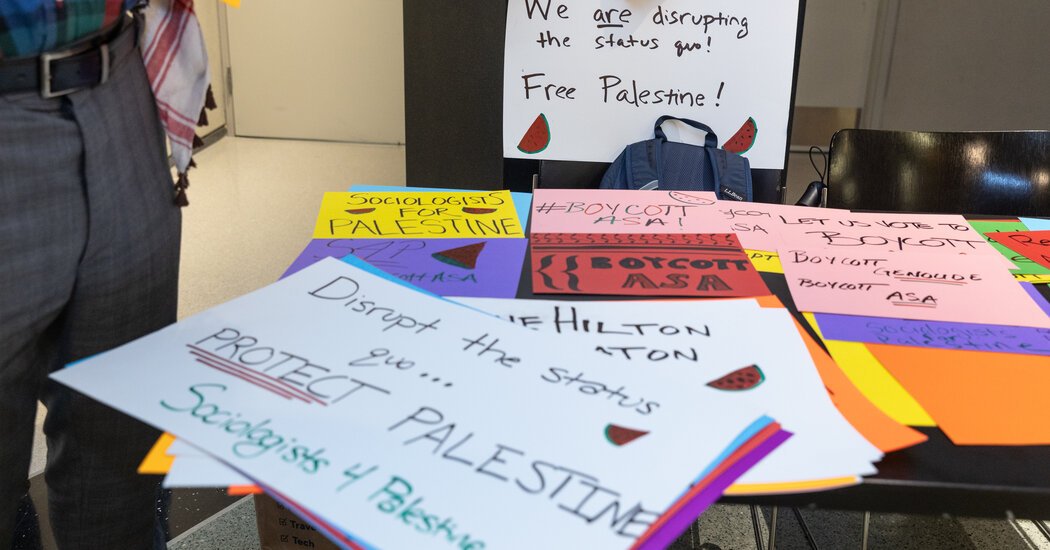 We are disrupting
the status quo!
Free Palestine!
SOCIOLOGISTS
FOR
PALESTINE
#BOYCOTT
ASA!
SA
LET US VOTE TO
BOYCOTT
BOYCOTT GENOCIDE
BOYCOTT ASA
BOYCOTT
ASA
HILTON
Disrupt the status
quo...
PROTECT PALESTINE
Sociologists 4 Palestine
Sociologists
Palestine
Trave
Tech